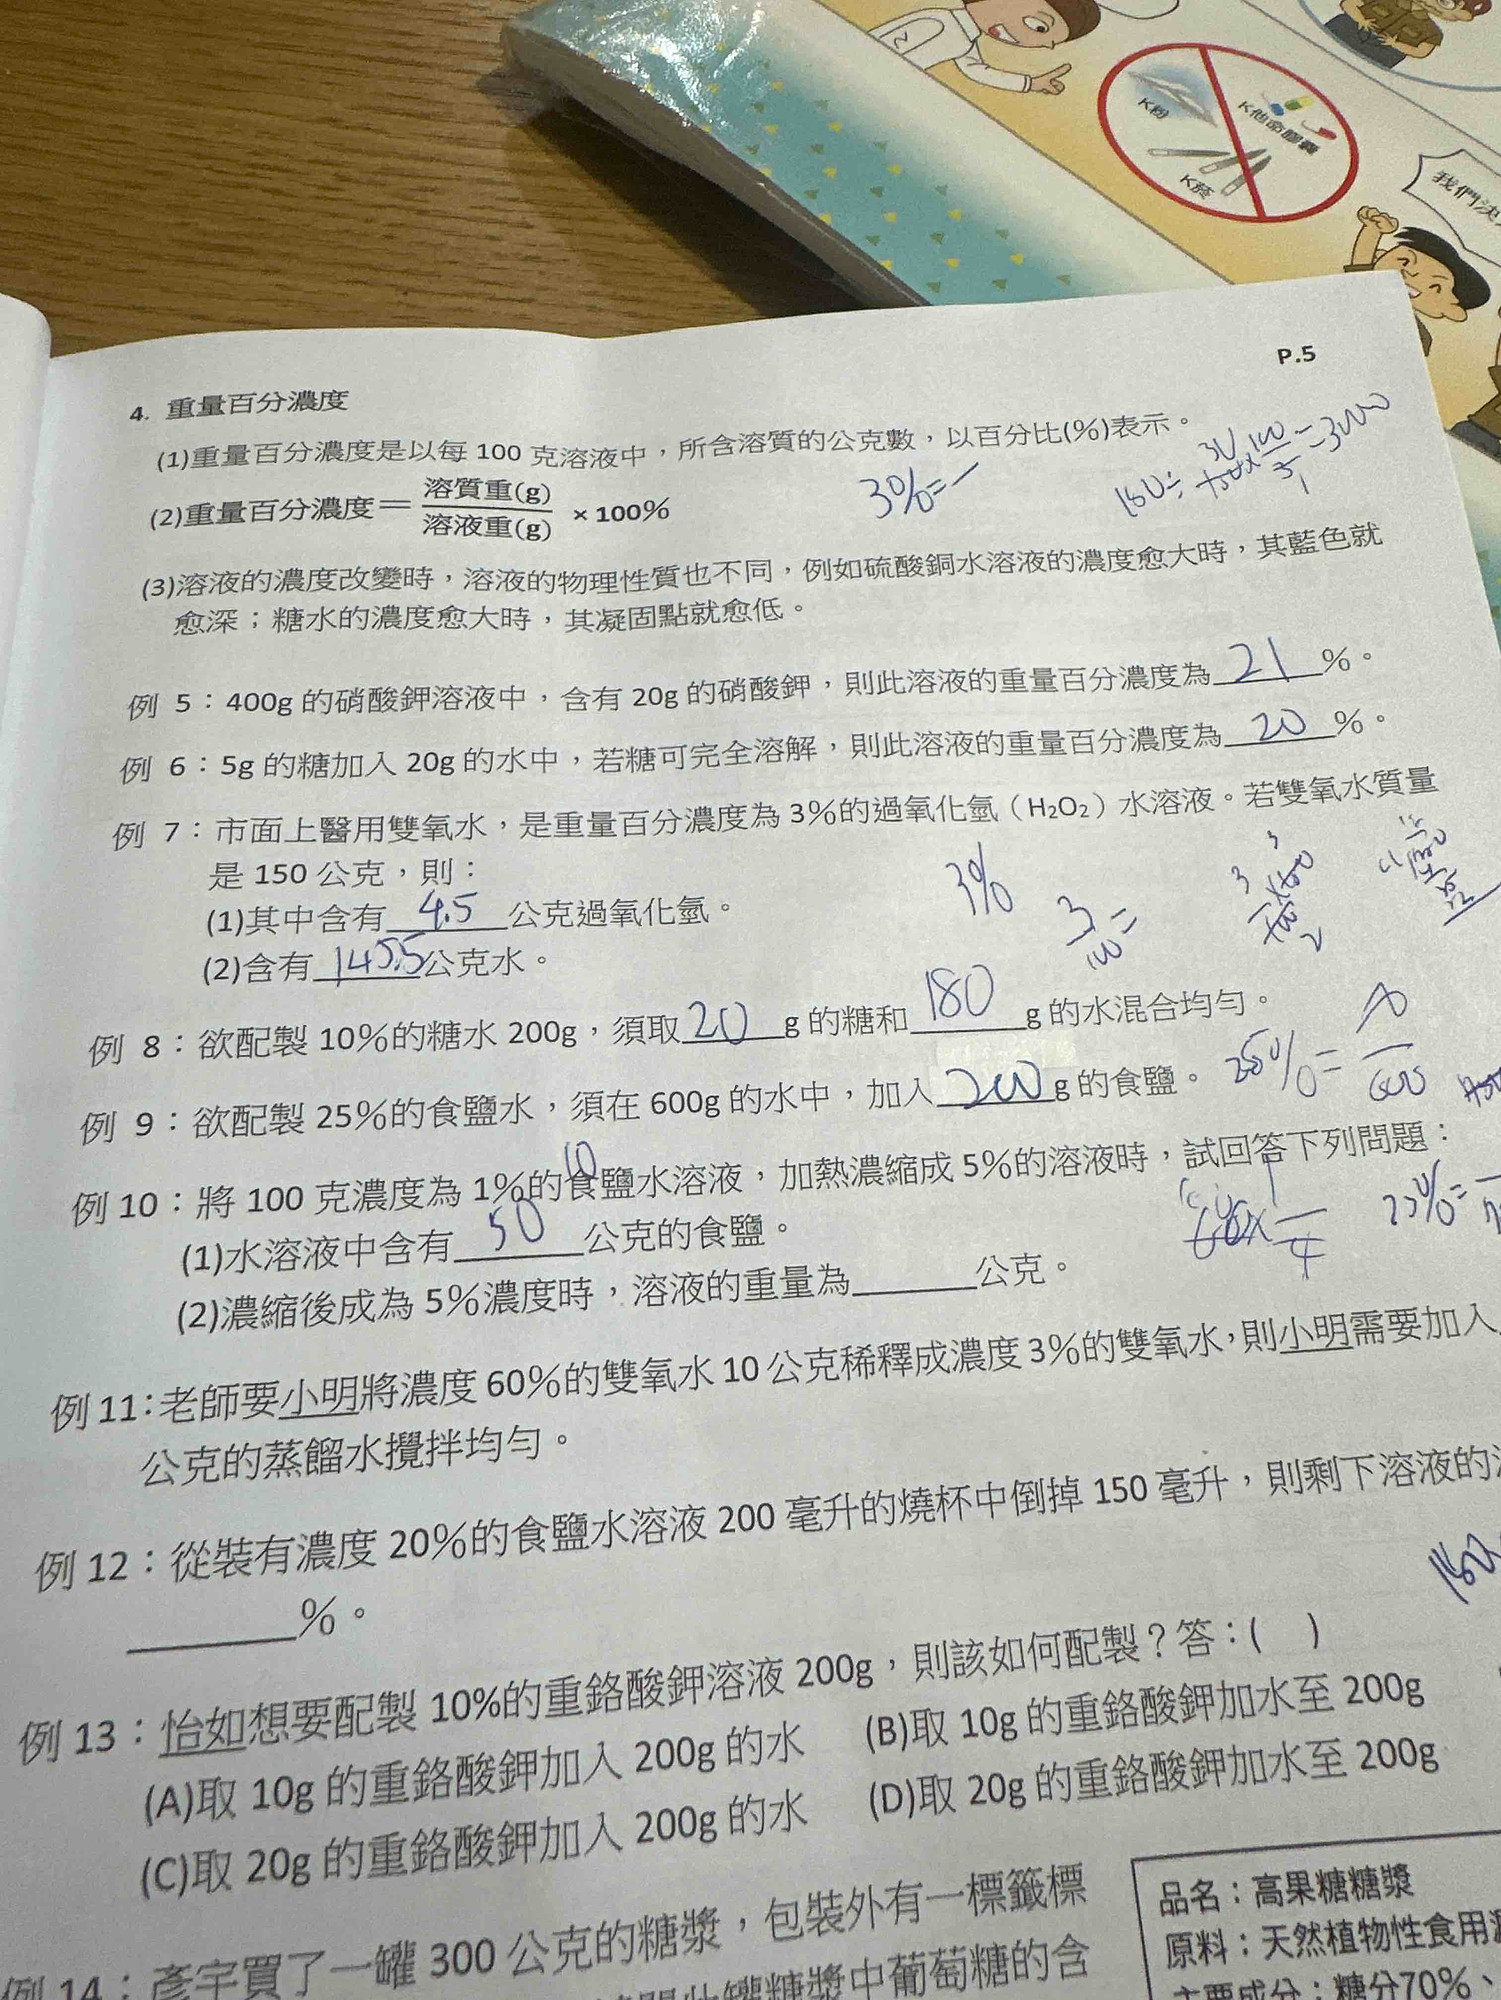 K粉
K他命膠囊
K菸
我們決
P.5
4. 重量百分濃度
(1)重量百分濃度是以每 100 克溶液中,所含溶質的公克數,以百分比(%)表示。
(2)重量百分濃度= 溶質重(g) / 溶液重(g) × 100%
3%=
(3)溶液的濃度改變時,溶液的物理性質也不同,例如硫酸銅水溶液的濃度愈大時,其藍色就
愈深;糖水的濃度愈大時,其凝固點就愈低。
例 5:400g 的硝酸鉀溶液中,含有 20g 的硝酸鉀,則此溶液的重量百分濃度為 21 %。
例 6:5g 的糖加入 20g 的水中,若糖可完全溶解,則此溶液的重量百分濃度為 20 %。
例 7:市面上醫用雙氧水,是重量百分濃度為 3%的過氧化氫(H₂O₂)水溶液。若雙氧水質量
是 150 公克,則:
(1)其中含有 4.5 公克過氧化氫。
3%
3/100=
(2)含有 145.5 公克水。
例 8:欲配製 10%的糖水 200g,須取 20 g 的糖和 180 g 的水混合均勻。
例 9:欲配製 25%的食鹽水,須在 600g 的水中,加入 200 g 的食鹽。
25%= /600
例 10:將 100 克濃度為 1%的食鹽水溶液,加熱濃縮成 5%的溶液時,試回答下列問題:
10
(1)水溶液中含有 50 公克的食鹽。
(2)濃縮後成為 5%濃度時,溶液的重量為______公克。
例 11:老師要小明將濃度 60%的雙氧水 10 公克稀釋成濃度 3%的雙氧水,則小明需要加入
公克的蒸餾水攪拌均勻。
例 12:從裝有濃度 20%的食鹽水溶液 200 毫升的燒杯中倒掉 150 毫升,則剩下溶液的
______%。
例 13:怡如想要配製 10%的重鉻酸鉀溶液 200g,則該如何配製?答:( )
(A)取 10g 的重鉻酸鉀加入 200g 的水 (B)取 10g 的重鉻酸鉀加水至 200g
(C)取 20g 的重鉻酸鉀加入 200g 的水 (D)取 20g 的重鉻酸鉀加水至 200g
例 14:彥宇買了一罐 300 公克的糖漿,包裝外有一標籤標
此罐糖漿中葡萄糖的含
品名:高果糖糖漿
原料:天然植物性食用
主要成分:糖分70%、